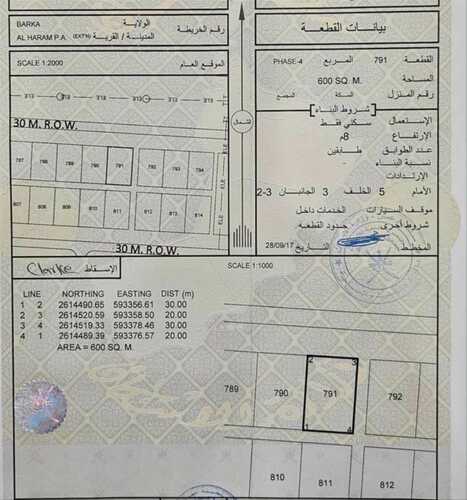 BARKA الولاية
رقم الخريطة
AL HARAM P.A. (EXTN) المدينة / القرية
بيانات القطعة
SCALE 1:2000 الموقع العام
القطعة 791 المربع PHASE-4
المساحة 600 SQ. M.
رقم المنزل السكة المجمع
شروط البناء
الإستعمال سكني فقط
الإرتفاع 8م
عدد الطوابق طابقين
نسبة البناء -
الإرتدادات
الأمام 5 الخلف 3 الجانبان 3-2
موقف السيارات الخدمات داخل
شروط أخرى حدود القطعة
المخطط التاريخ 28/09/17
الشمال
30 M. R.O.W.
787 788 790 791 792 793 794
807 808 809 810 811 812 813 814
30 M. R.O.W.
Clarke الإسقاط
SCALE 1:1000
LINE NORTHING EASTING DIST (m)
1 2 2614490.65 593356.61 30.00
2 3 2614520.59 593358.50 20.00
3 4 2614519.33 593378.46 30.00
4 1 2614489.39 593376.57 20.00
AREA = 600 SQ. M.
2 3
789 790 791 792
1 4
810 811 812